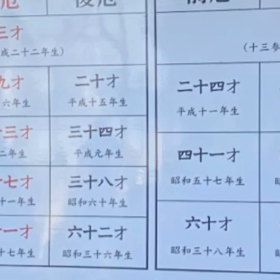 厄
後厄
三才
成二十二年生）
九才
六年生
二十才
平成十五年生
十三才
二年生
三十四才
平成元年生
十七才
十一年生
三十八才
昭和六十年生
十一才
十七年生
六十二才
昭和三十六年生
前厄
（十三参
二十四才
平成十一年生
四十一才
昭和五十七年生
六十才
昭和三十八年生